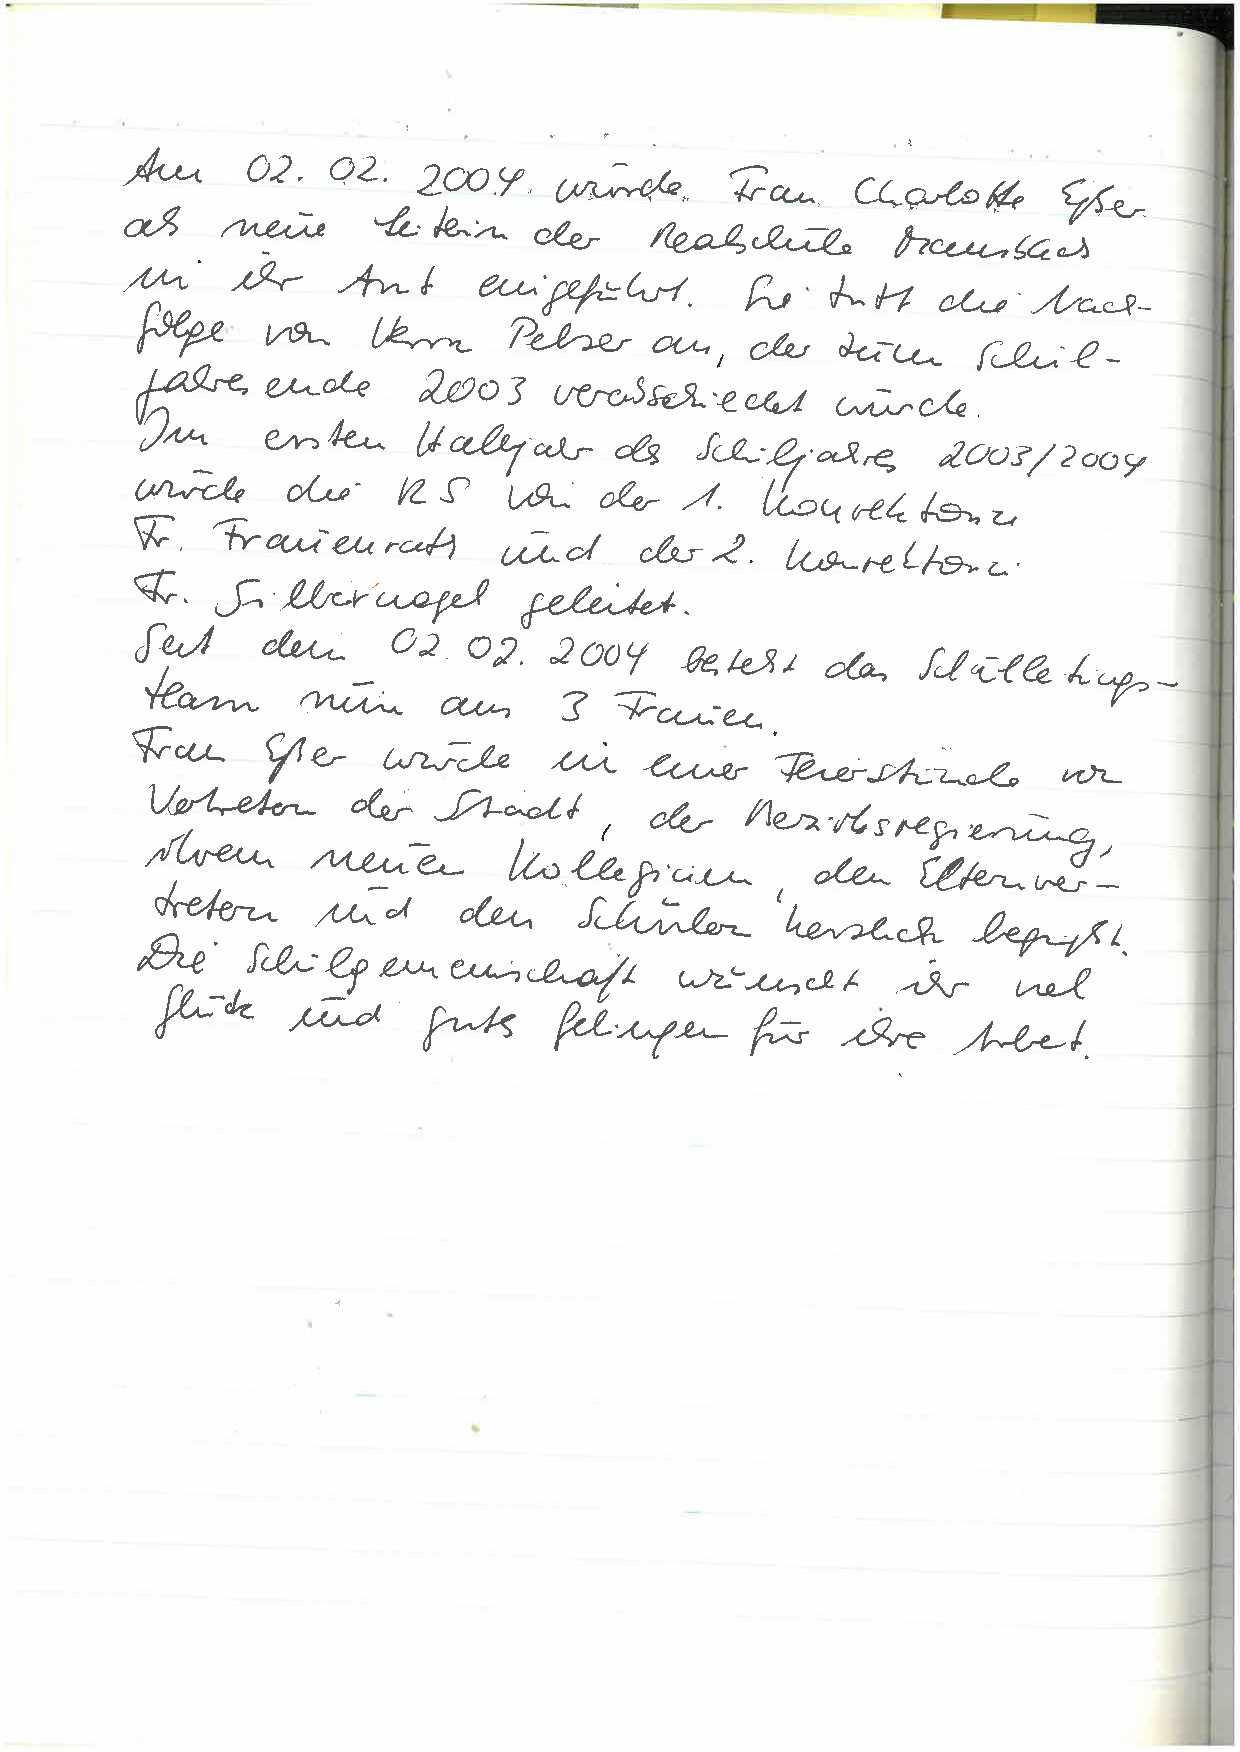 Am 02. 02. 2004 wurde Frau Charlotte Eßer
als neue Leiterin der Realschule
in ihr Amt eingeführt. Sie tritt die Nach-
folge von Herrn Pelzer an, der zum Schul-
jahresende 2003 verabschiedet wurde.
Im ersten Halbjahr des Schuljahres 2003/2004
wurde die RS von der 1. Konrektorin
Fr. Frauenrath und der 2. Konrektorin
Fr. Silbernagel geleitet.
Seit dem 02. 02. 2004 besteht das Schulleitungs-
team nun aus 3 Frauen.
Frau Eßer wurde in einer Feierstunde von
Vertretern der Stadt, der Bezirksregierung,
ihrem neuen Kollegium, den Elternver-
tretern und den Schülern herzlich begrüßt.
Die Schulgemeinschaft wünscht ihr viel
Glück und gutes Gelingen für ihre Arbeit.